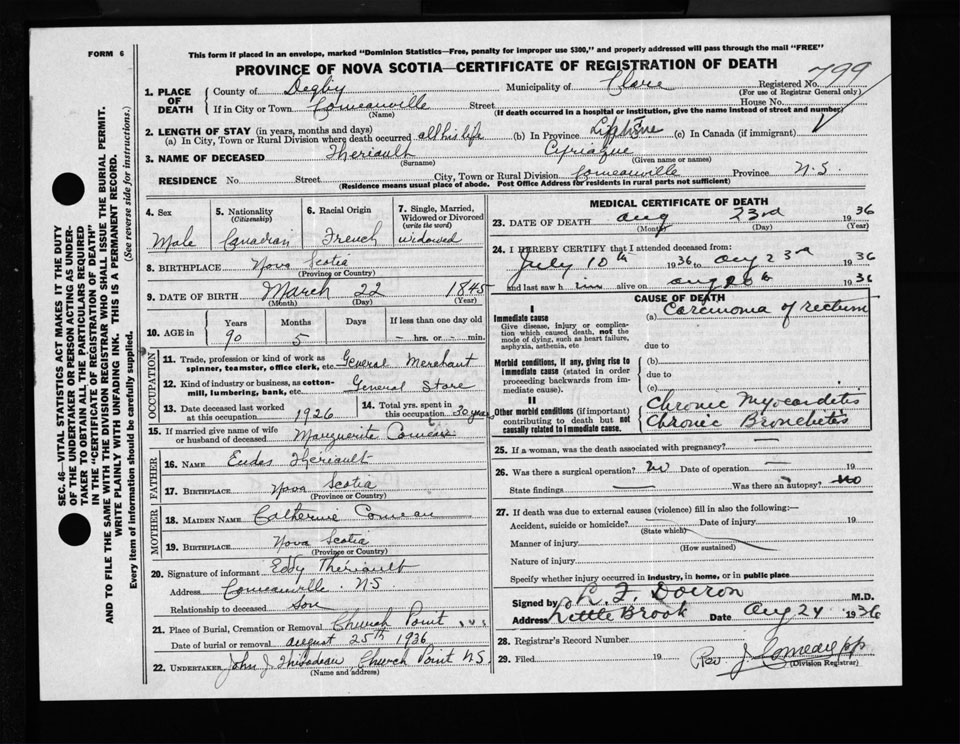 FORM 6
This form if placed in an envelope, marked "Dominion Statistics—Free, penalty for improper use $300," and properly addressed will pass through the mail "FREE"
PROVINCE OF NOVA SCOTIA—CERTIFICATE OF REGISTRATION OF DEATH
799
1. PLACE OF DEATH
County of Degby Municipality of Clare Registered No.
(For use of Registrar General only)
If in City or Town Comeauville Street House No.
(Name) (If death occurred in a hospital or institution, give the name instead of street and number)
2. LENGTH OF STAY (in years, months and days)
(a) In City, Town or Rural Division where death occurred all his life (b) In Province (c) In Canada (if immigrant)
3. NAME OF DECEASED Theriault Cyriaque
(Surname) (Given name or names)
RESIDENCE No. Street City, Town or Rural Division Comeauville Province N.S.
(Residence means usual place of abode. Post Office Address for residents in rural parts not sufficient)
4. Sex Male
5. Nationality (Citizenship) Canadian
6. Racial Origin French
7. Single, Married, Widowed or Divorced (write the word) widowed
8. BIRTHPLACE Nova Scotia
(Province or Country)
9. DATE OF BIRTH March 22 1845
(Month) (Day) (Year)
10. AGE in Years Months Days If less than one day old
90 5 hrs. or min.
OCCUPATION
11. Trade, profession or kind of work as spinner, teamster, office clerk, etc. General Merchant
12. Kind of industry or business, as cotton-mill, lumbering, bank, etc. General Store
13. Date deceased last worked at this occupation 1926
14. Total yrs. spent in this occupation 30 years
15. If married give name of wife or husband of deceased Marguerite Comeau
FATHER
16. NAME Eudes Theriault
17. BIRTHPLACE Nova Scotia
(Province or Country)
MOTHER
18. MAIDEN NAME Catherine Comeau
19. BIRTHPLACE Nova Scotia
(Province or Country)
20. Signature of informant Eddy Theriault
Address Comeauville NS
Relationship to deceased Son
21. Place of Burial, Cremation or Removal Church Point N.S.
Date of burial or removal august 25th 1936
22. UNDERTAKER John J Thibodeau Church Point NS.
(Name and address)
MEDICAL CERTIFICATE OF DEATH
23. DATE OF DEATH aug 23rd 1936
(Month) (Day) (Year)
24. I HEREBY CERTIFY that I attended deceased from:
July 10th 1936 to aug 23rd 1936
and last saw h im alive on aug 1936
CAUSE OF DEATH
I
Immediate cause
Give disease, injury or complication which caused death, not the mode of dying, such as heart failure, asphyxia, asthenia, etc
(a) Carcinoma of rectum
due to
Morbid conditions, if any, giving rise to immediate cause (stated in order proceeding backwards from immediate cause).
(b)
due to
(c)
II
Other morbid conditions (if important) contributing to death but not causally related to immediate cause.
Chronic Myocardetis
Chronic Bronchetis
25. If a woman, was the death associated with pregnancy?
26. Was there a surgical operation? no Date of operation 19
State findings Was there an autopsy? no
27. If death was due to external causes (violence) fill in also the following:—
Accident, suicide or homicide? Date of injury 19
(State which)
Manner of injury
(How sustained)
Nature of injury
Specify whether injury occurred in industry, in home, or in public place
Signed by L. F. Doiron M.D.
Address Little Brook Date Aug 24 1936
28. Registrar's Record Number
29. Filed 19 Rev J Comeau pp
(Division Registrar)
SEC. 46—VITAL STATISTICS ACT MAKES IT THE DUTY
OF THE UNDERTAKER OR PERSON ACTING AS UNDER-
TAKER TO OBTAIN ALL THE PARTICULARS REQUIRED
IN THE "CERTIFICATE OF REGISTRATION OF DEATH"
AND TO FILE THE SAME WITH THE DIVISION REGISTRAR WHO SHALL ISSUE THE BURIAL PERMIT.
WRITE PLAINLY WITH UNFADING INK. THIS IS A PERMANENT RECORD.
Every item of information should be carefully supplied. (See reverse side for instructions.)